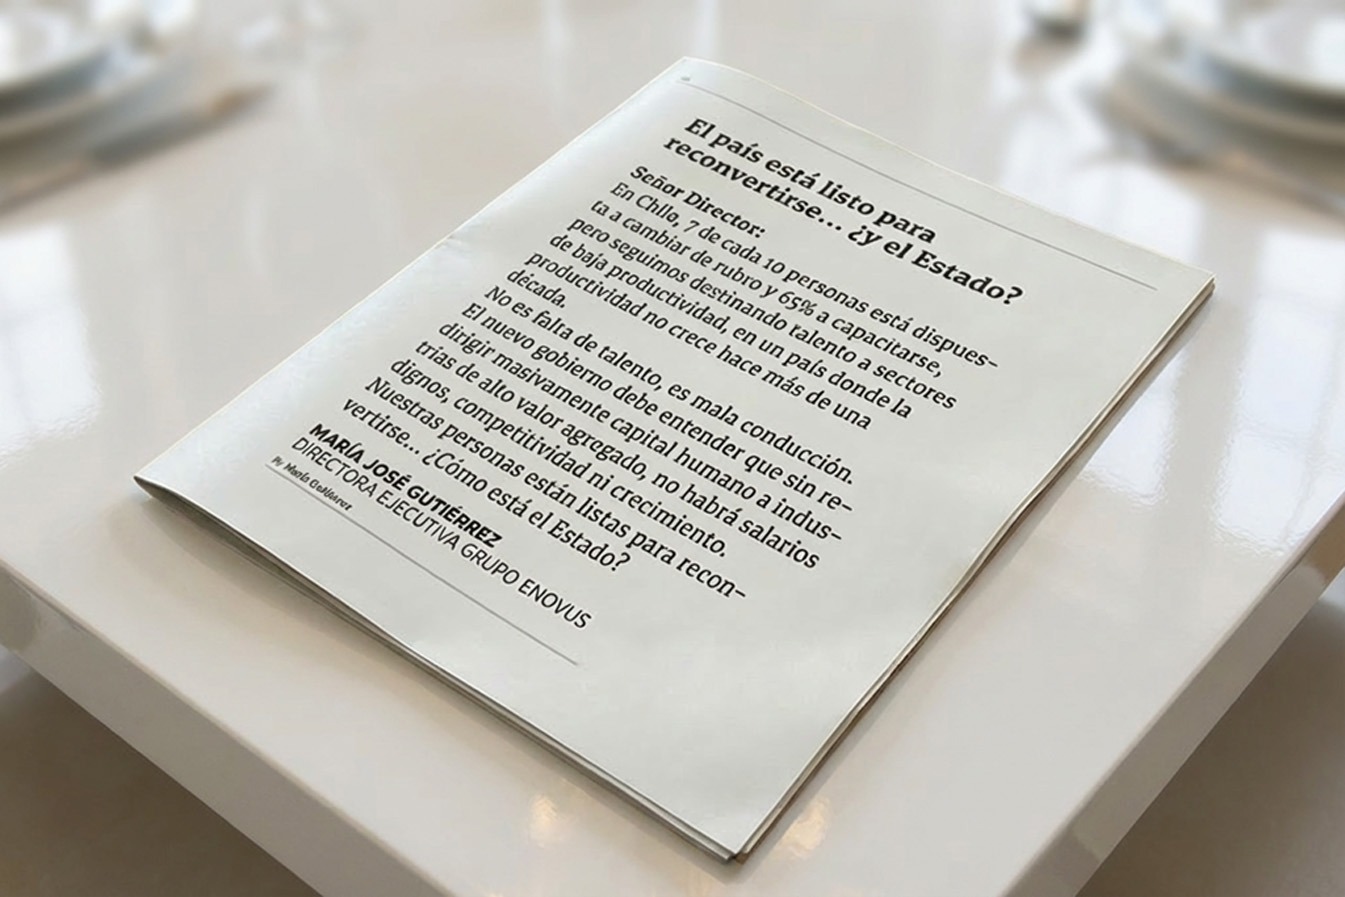 El país está listo para
reconvertirse... ¿y el Estado?
Señor Director:
En Chllo, 7 de cada 10 personas está dispues-
ta a cambiar de rubro y 65% a capacitarse,
pero seguimos destinando talento a sectores
de baja productividad, en un país donde la
productividad no crece hace más de una
década.
No es falta de talento, es mala conducción.
El nuevo gobierno debe entender que sin re-
dirigir masivamente capital humano a indus-
trias de alto valor agregado, no habrá salarios
dignos, competitividad ni crecimiento.
Nuestras personas están listas para recon-
vertirse... ¿Cómo está el Estado?
MARÍA JOSÉ GUTIÉRREZ
DIRECTORA EJECUTIVA GRUPO ENOVUS